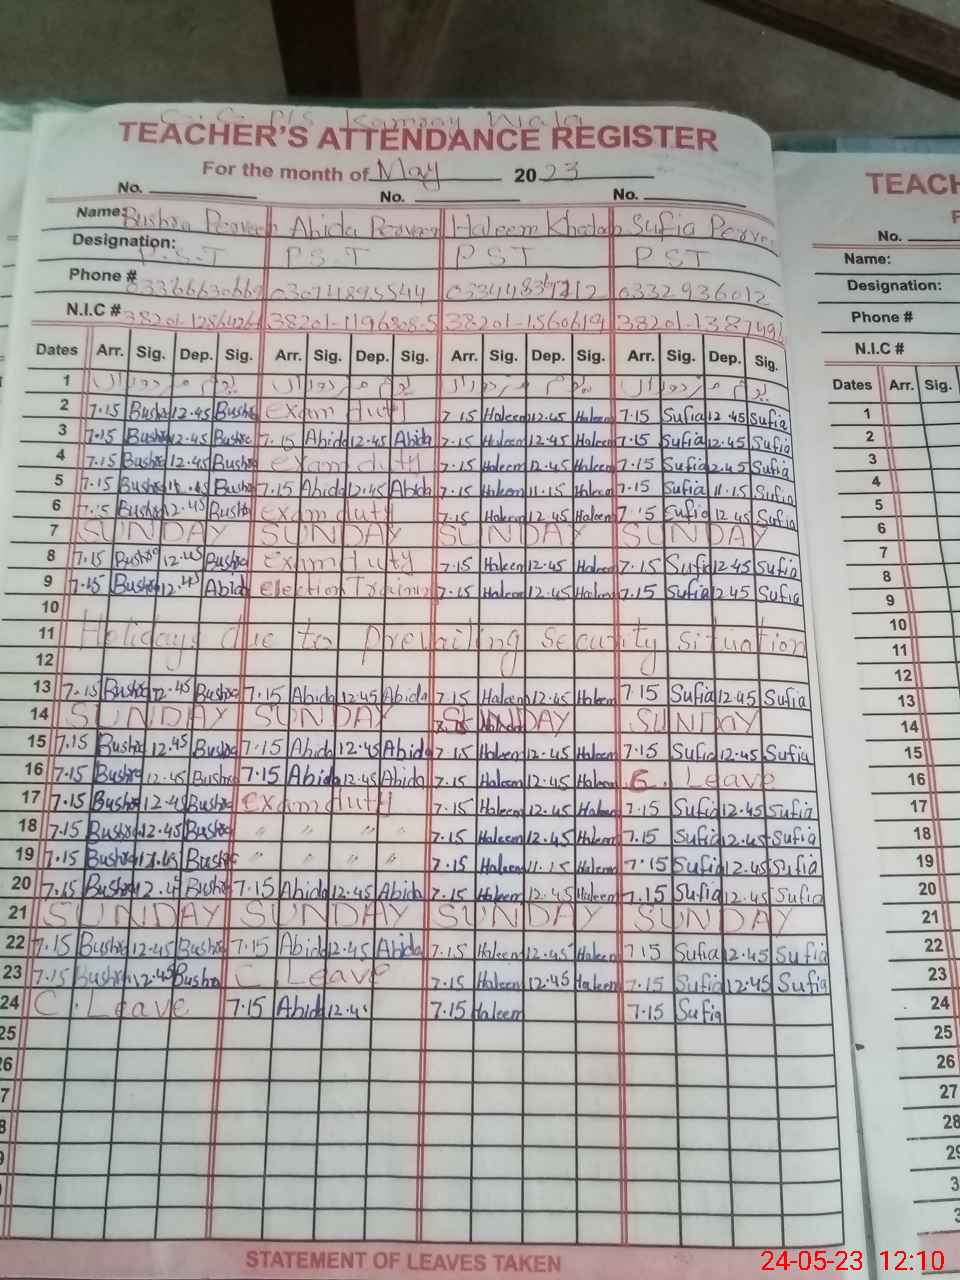 TEACHER'S ATTENDANCE REGISTER
For the month of May 2023
No. No. No.
Name: Bushra Parveen Abida Parveen Haleem Khadab Sufia Parveen
Designation: P.S.T P.S.T PST PST
Phone # 03366630669 03074895544 03344837212 0332936012
N.I.C # 38201-1 38201-1196808-5 38201-1560619 38201-138749
Dates Arr. Sig. Dep. Sig. Arr. Sig. Dep. Sig. Arr. Sig. Dep. Sig. Arr. Sig. Dep. Sig.
1 یوم مزدوراں یوم مزدوراں یوم مزدوراں یوم مزدوراں
2 7.15 Bushra 12.45 Bushra exam duty 7.15 Haleem 12.45 Haleem 7.15 Sufia 12.45 Sufia
3 7.15 Bushra 12.45 Bushra 7.15 Abida 12.45 Abida 7.15 Haleem 12.45 Haleem 7.15 Sufia 12.45 Sufia
4 7.15 Bushra 12.45 Bushra exam duty 7.15 Haleem 12.45 Haleem 7.15 Sufia 12.45 Sufia
5 7.15 Bushra Bushra 7.15 Abida 12.45 Abida 7.15 Haleem 11.15 Haleem 7.15 Sufia 11.15 Sufia
6 7.15 Bushra 12.45 Bushra exam duty 7.15 Haleem 12.45 Haleem 7.15 Sufia 12.45 Sufia
7 SUNDAY SUNDAY SUNDAY SUNDAY
8 7.15 Bushra 12.45 Bushra Exam duty 7.15 Haleem 12.45 Haleem 7.15 Sufia 12.45 Sufia
9 7.15 Bushra 12.45 Abida election Training 7.15 Haleem 12.45 Haleem 7.15 Sufia 12.45 Sufia
10
11 Holidays due to prevailing security situation
12
13 7.15 Bushra 12.45 Bushra 7.15 Abida 12.45 Abida 7.15 Haleem 12.45 Haleem 7.15 Sufia 12.45 Sufia
14 SUNDAY SUNDAY SUNDAY SUNDAY
15 7.15 Bushra 12.45 Bushra 7.15 Abida 12.45 Abida 7.15 Haleem 12.45 Haleem 7.15 Sufia 12.45 Sufia
16 7.15 Bushra 12.45 Bushra 7.15 Abida 12.45 Abida 7.15 Haleem 12.45 Haleem C. Leave
17 7.15 Bushra 12.45 Bushra Exam duty 7.15 Haleem 12.45 Haleem 7.15 Sufia 12.45 Sufia
18 7.15 Bushra 12.45 Bushra " " " " 7.15 Haleem 12.45 Haleem 7.15 Sufia 12.45 Sufia
19 7.15 Bushra Bushra " " " " 7.15 Haleem 11.15 Haleem 7.15 Sufia 12.45 Sufia
20 7.15 Bushra 12.45 Bushra 7.15 Abida 12.45 Abida 7.15 Haleem 12.45 Haleem 7.15 Sufia 12.45 Sufia
21 SUNDAY SUNDAY SUNDAY SUNDAY
22 7.15 Bushra 12.45 Bushra 7.15 Abida 12.45 Abida 7.15 Haleem 12.45 Haleem 7.15 Sufia 12.45 Sufia
23 7.15 Bushra 12.45 Bushra C Leave 7.15 Haleem 12.45 Haleem 7.15 Sufia 12.45 Sufia
24 C. Leave 7.15 Abida 12.45 7.15 Haleem 7.15 Sufia
25
26
7
8
9
STATEMENT OF LEAVES TAKEN
TEACH
No.
Name:
Designation:
Phone #
N.I.C #
Dates Arr. Sig.
1
2
3
4
5
6
7
8
9
10
11
12
13
14
15
16
17
18
19
20
21
22
23
24
25
26
27
28
29
3
3
24-05-23 12:10